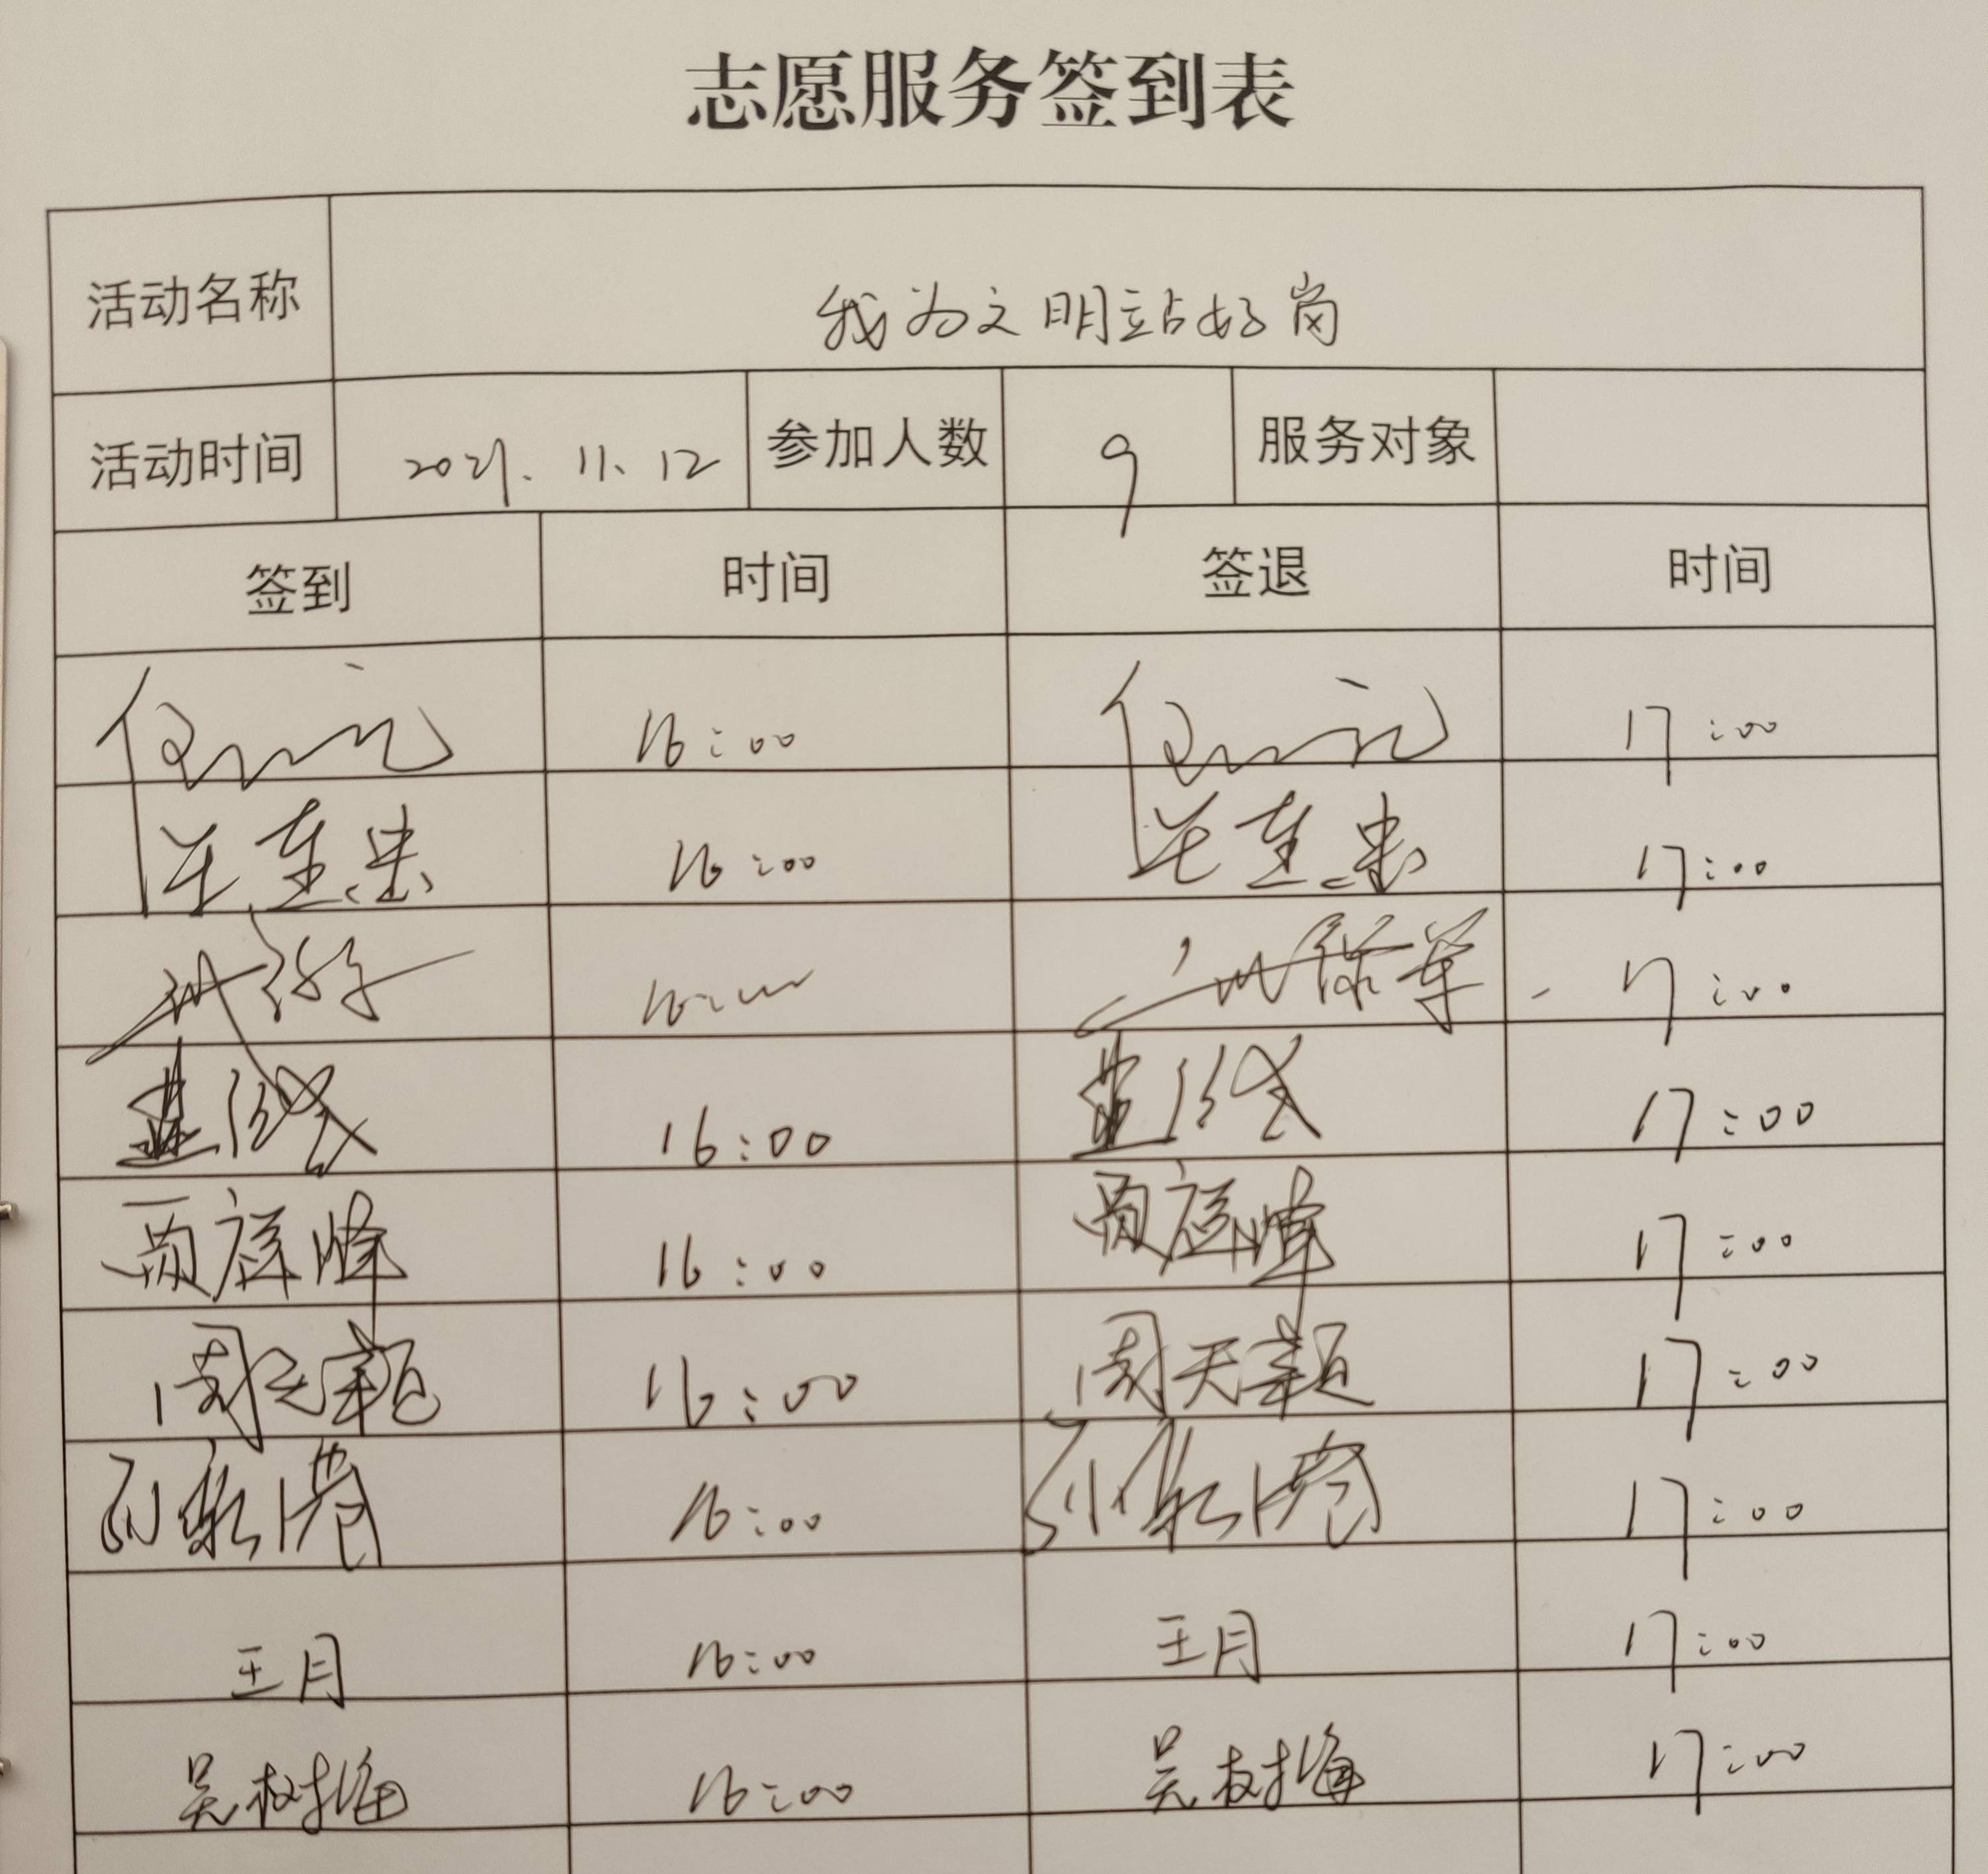 志愿服务签到表
活动名称 我为文明站好岗
活动时间 2021.11.12 参加人数 9 服务对象
签到 时间 签退 时间
16:00 17:00
16:00 17:00
17:00
16:00 17:00
贾庭峰 16:00 贾庭峰 17:00
周天颖 16:00 周天颖 17:00
16:00 17:00
王月 16:00 王月 17:00
吴树梅 16:00 吴树梅 17:00